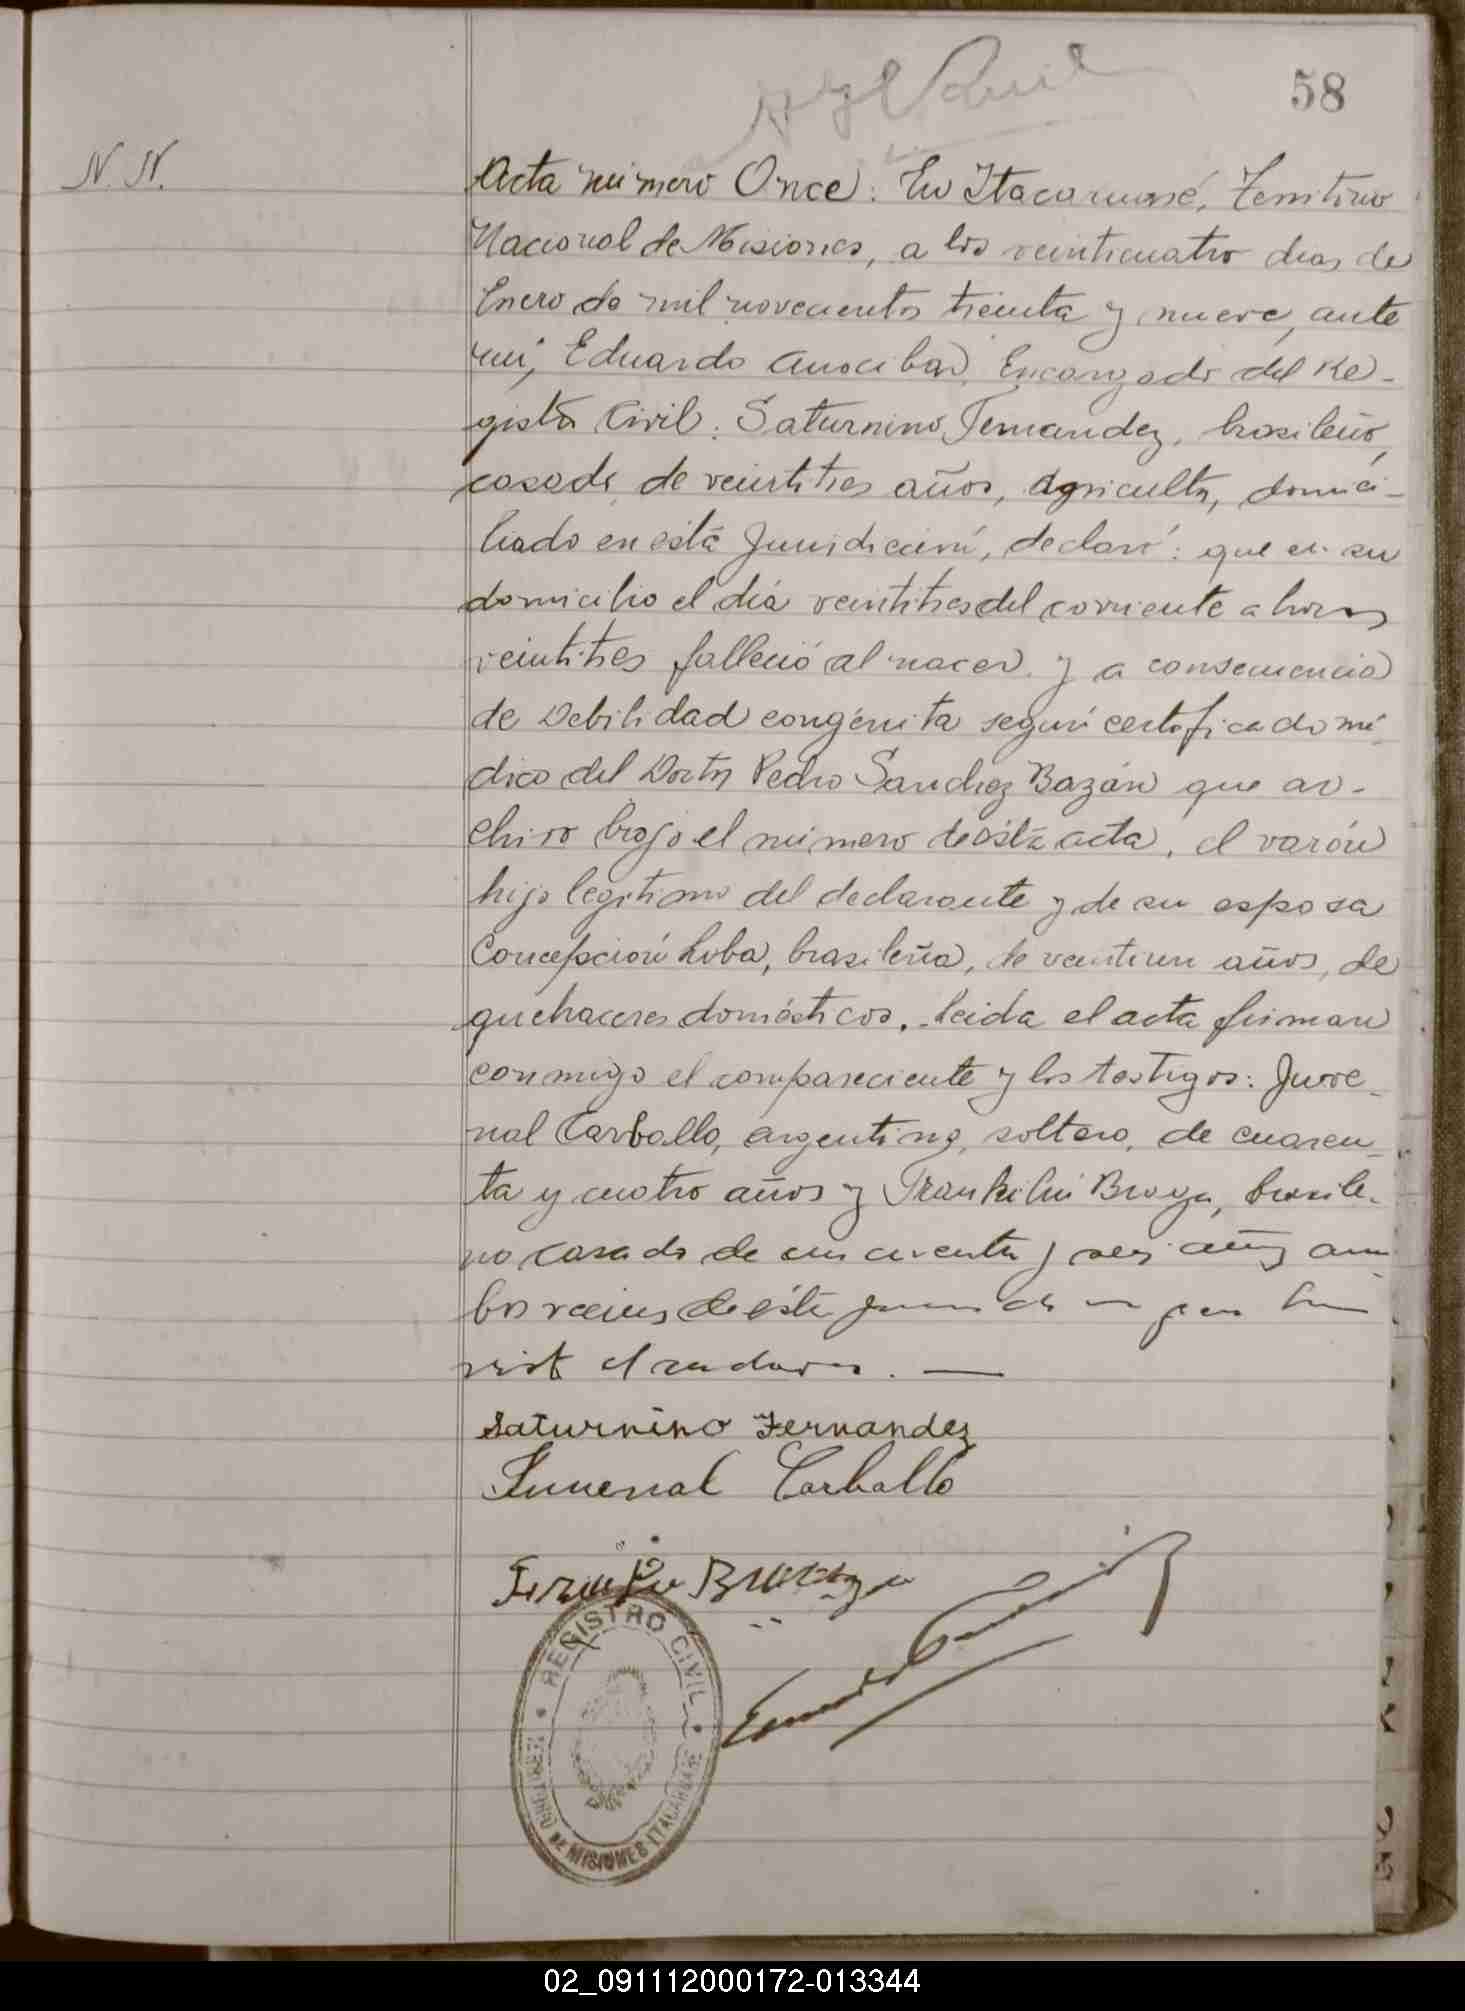 58
N. N.
Acta número Once: En Itacaruaré, Territorio
Nacional de Misiones, a los veinticuatro dias de
Enero de mil novecientos treinta y nueve, ante
mi, Eduardo Encargado del Re-
gistro Civil: Saturnino Fernandez, brasileño,
casado, de veintitres años, agricultor, domici-
liado en está Jurisdicción, declaró: que en su
domicilio el día veintitres del corriente a horas
veintitres falleció al nacer y a consecuencia
de Debilidad congénita según certificado mé-
dico del Doctor Pedro Sanchez Bazán que ar-
chivo bajo el número de ésta acta, el varón
hijo legitimo del declarante y de su esposa
Concepción Loba, brasileña, de veintiun años, de
quehaceres domésticos. Leida el acta firman
conmigo el compareciente y los testigos: Juve-
nal Carballo, argentino, soltero, de cuaren-
ta y cuatro años y Franklin Braga, brasile-
no casado de cincuenta y seis años am
bos vecinos de ésta
el cadaver. —
Saturnino Fernandez
Juvenal Carballo
Braga
REGISTRO CIVIL
TERRITORIO DE MISIONES ITACARUARE
02_091112000172-013344